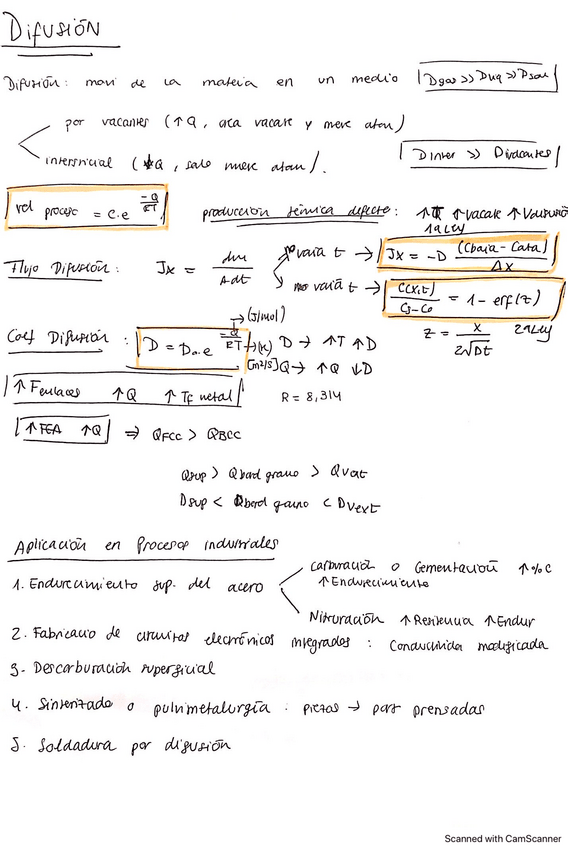 DIFUSIÓN
DIFUSIÓN: movi de la materia en un medio Dgas >> Dliq >> Dsol
por vacantes (↑Q, crea vacate y mere atom)
intersticial (↓Q, solo mere atom).
Dinter >> Dvacantes
vel proceso = C·e^(-Q/RT)
producción térmica defecto: ↑T ↑vacate ↑Vdifusión
1a Ley
Flujo Difusión: Jx = dm/Adt
no varia t → Jx = -D (Cbaja - Calta)/Δx
C(x,t)/Cs-C0 = 1 - erf(z)
z = x/2√Dt 2a Ley
Coef Difusión: D = D0·e^(-Q/RT) → (J/mol) → (K) [m²/s]
D → ↑T ↑D
Q → ↑Q ↓D
↑Fenlaces ↑Q ↑Tf metal
R = 8,314
↑FEA ↑Q ⇒ QFCC > QBCC
Qsup > Qbord grano > Qvext
Dsup < Dbord grano < Dvext
Aplicación en Procesos industriales
1. Endurecimiento sup. del acero
carburación o Cementación ↑%C
↑Endurecimiento
Nitruración ↑Resitencia ↑Endur
2. Fabricacio de circuitos electrónicos integrados: Conductivida modificada
3. Descarburación superficial
4. Sinterizado o pulvimetalurgia: piezas → part prensadas
5. Soldadura por difusión
Scanned with CamScanner